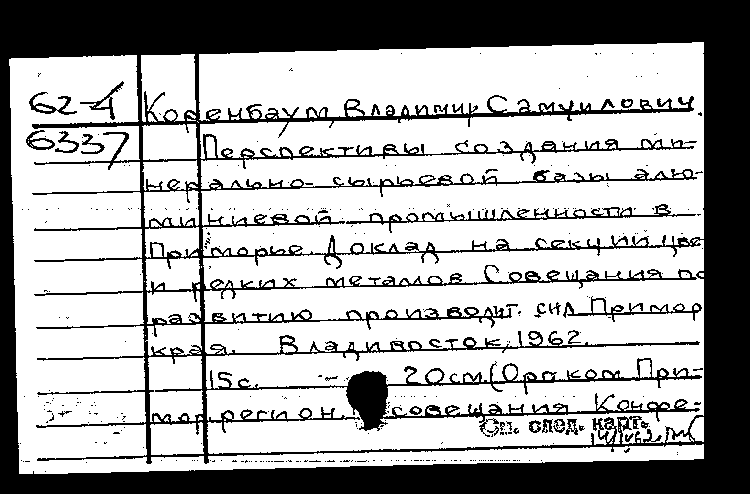 62-4 Коренбаум, Владимир Самуилович.
6337 Перспективы создания ми-
нерально-сырьевой базы алю-
миниевой промышленности в
Приморье. Доклад на секции цве
и редких металлов Совещания по
развитию производит. сил Примор
края. Владивосток, 1962.
15с. 20см. (Орг. ком. При-
мор. регион. совещания Конфе-
См. след. карт.